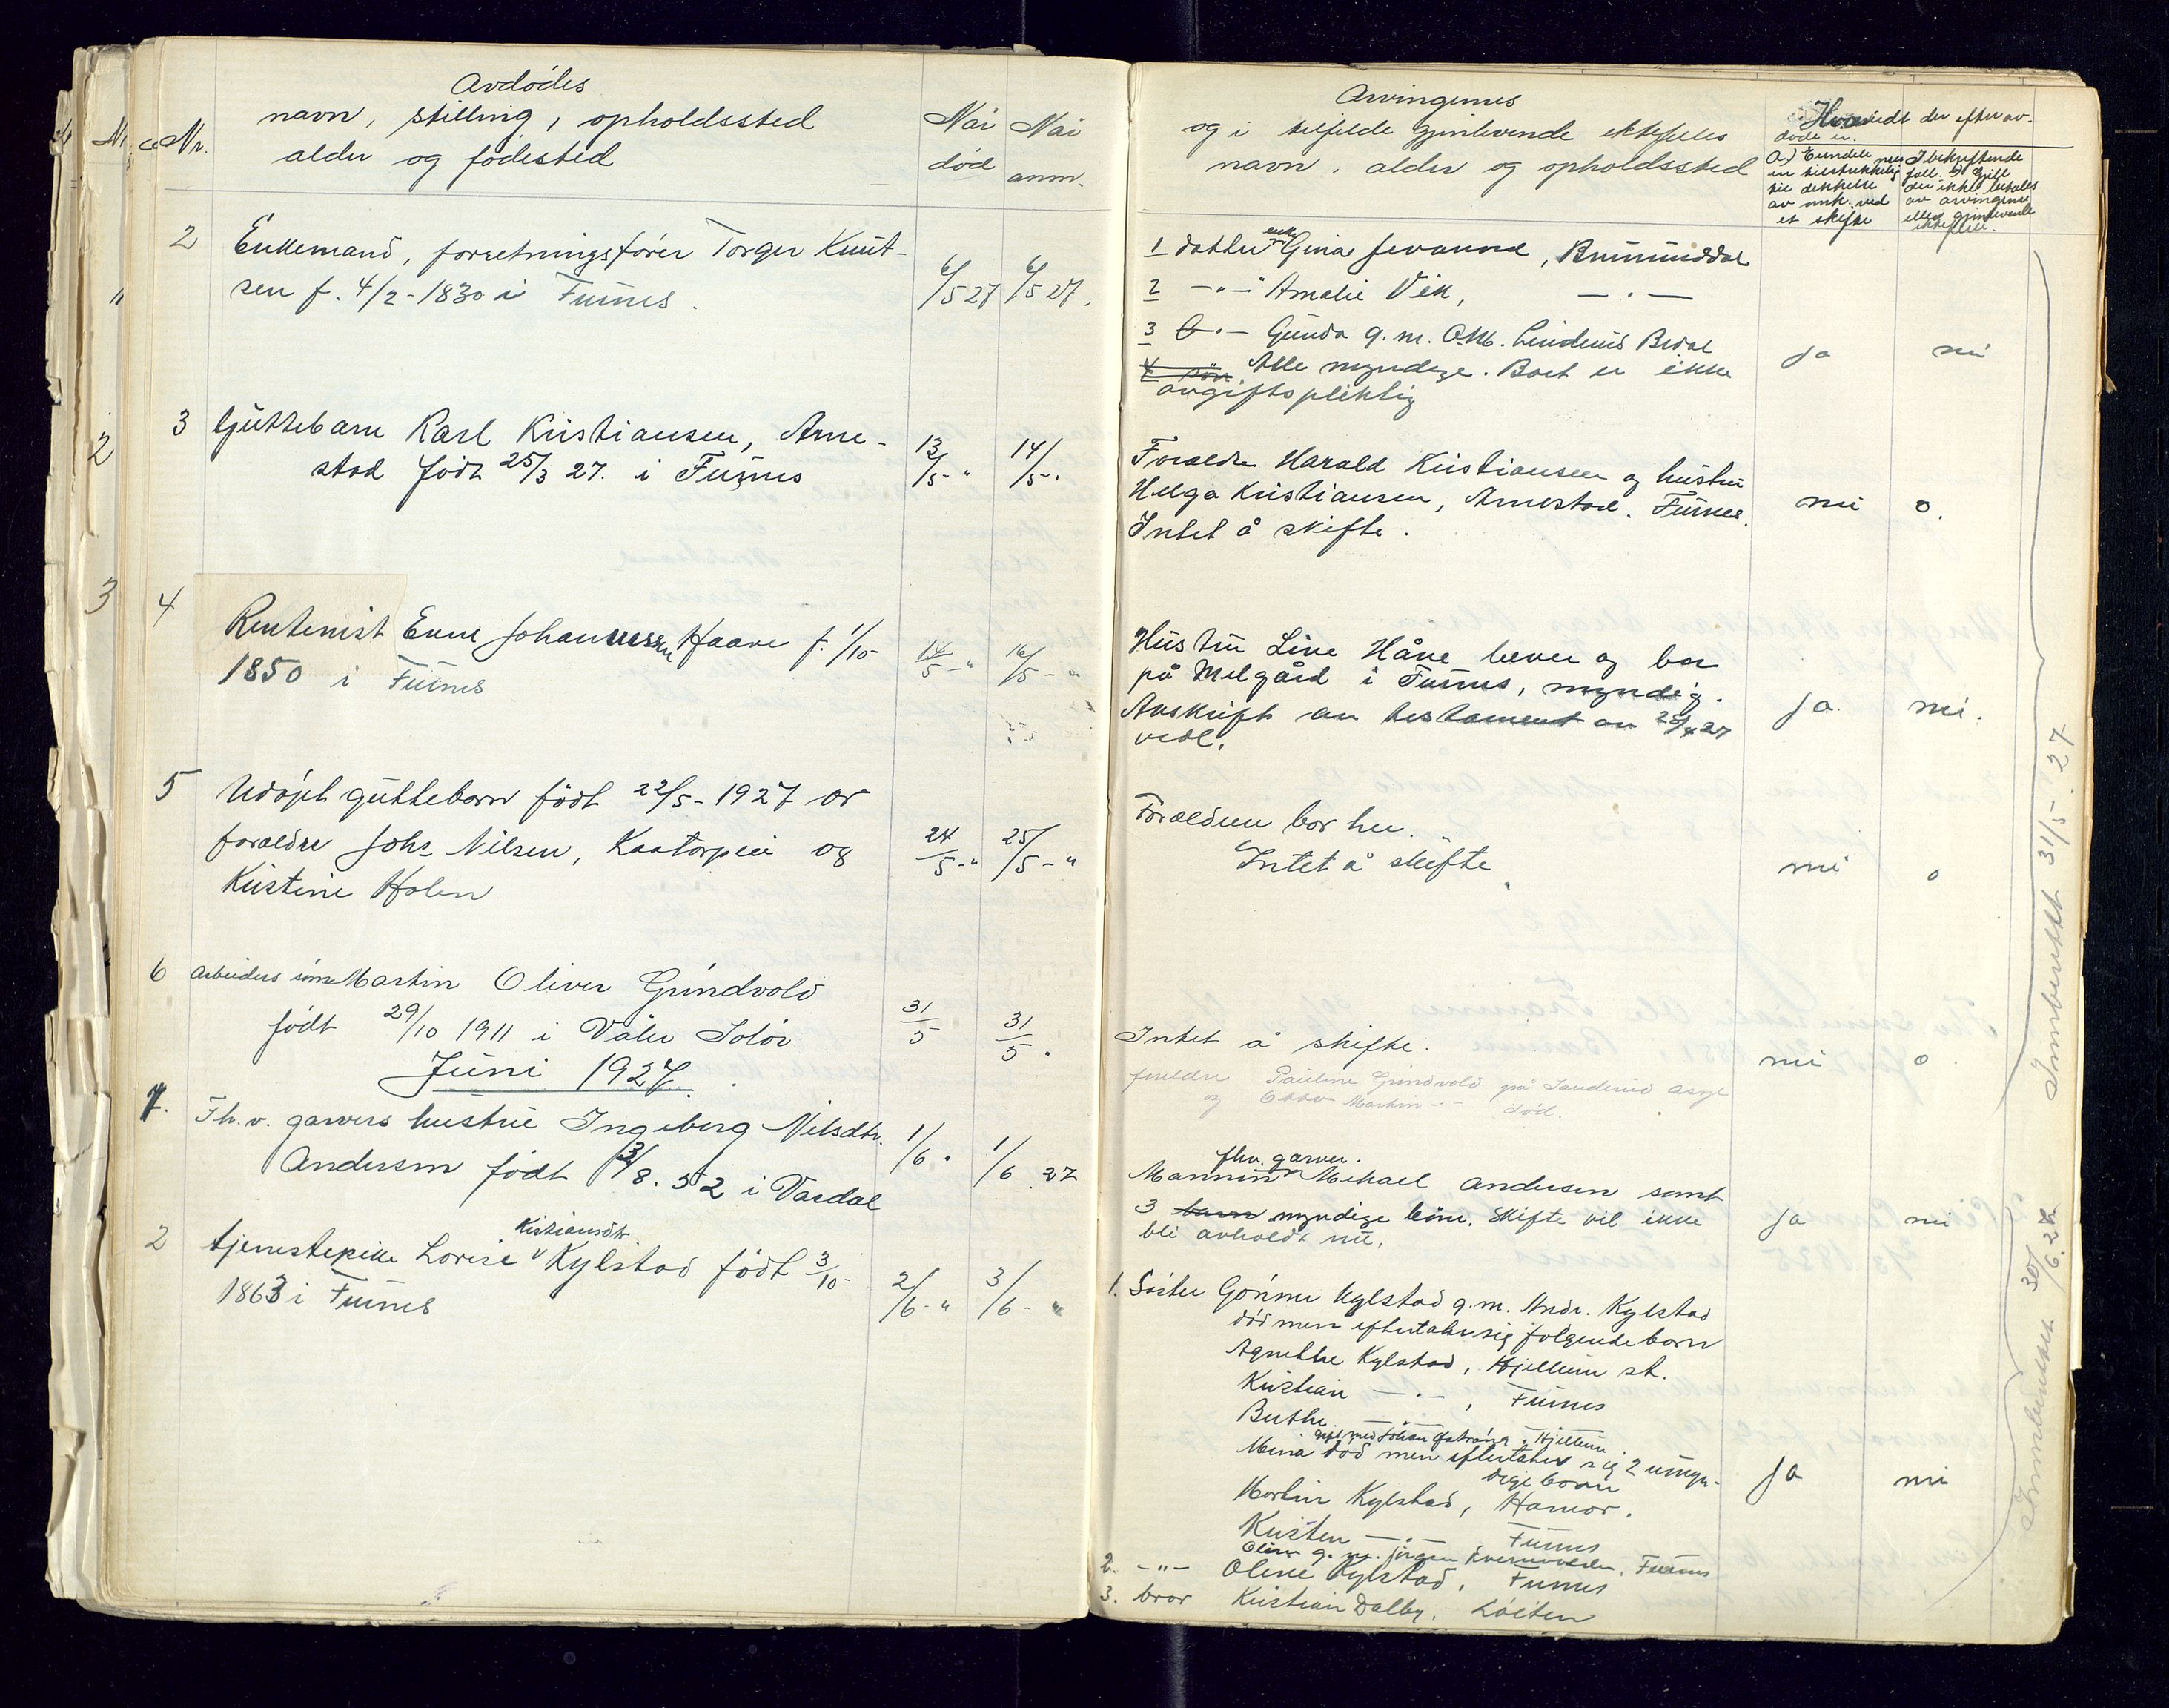 Avdødes
Nr. navn, stilling, opholdssted
alder og fødested
Når død
Når anm.
2 Enkemand, forretningsfører Torger Knut-
sen f. 4/2-1830 i Furnes. 6/5 27 6/5 27.
3 Guttebarn Karl Kristiansen, Arne-
stad født 25/3 27. i Furnes 13/5-" 14/5-"
4 Rentenist Even Johannessen Haave f. 1/10-
1850 i Furnes 14/5-" 16/5-"
5 Udøpt guttebarn født 22/5-1927 av
foraeldre Johs Nilsen, Kaatorpei og
Kristine Holen 24/5-" 25/5-"
6 Arbeiders søn Martin Oliver Grindvold
født 29/10 1911 i Våler Solør 31/5 31/5.
Juni 1927.
1. Fh.v. garvers hustru Ingeborg Nilsdtr.
Andersen født 3/8. 52 i Vardal 1/6 " 1/6 27
2 tjenestepike Lovise Kristiansdtr. Kylstad født 3/10-
1863 i Furnes 2/6-" 3/6-"
Arvingernes
og i tilfelde gjenlevende ektefelles
navn, alder og opholdssted
Hvorvidt der efter av-
døde er.
a) Eiendele nok
en tilstrekkelig
til dekkelse
av omk. ved
et skifte
I bekreftende
fall. b) Gjeld
der ikke betales
av arvingerne
eller gjenlevende
ektefelle.
1 datter enke Gina Jevanord, Brumunddal
2 -"- Amalie Vik, - " -
3 -"- Gunda g. m. O.M. Linderud Brdal
4 søn Alle myndige. Boet er ikke
avgiftspliktig
ja nei
Foraeldre Harald Kristiansen og hustru
Helga Kristiansen, Arnestad. Furnes.
Intet å skifte.
nei o.
Hustru Line Håve lever og bor
på Melgård i Furnes, myndig.
Avskrift av testament av 25/4 27
vedl.
ja nei.
Foraeldrene bor her.
Intet å skifte
nei o
Intet å skifte.
foreldre Pauline Grindvold på Sanderud asyl
og Otto Martin -"- død.
nei o
Mannen fhv. garver. Mikael Andersen samt
3 barn myndige børn. Skifte vil ikke
bli avholdt nu.
ja nei
1. Søster Gønner Kylstad g.m. Andr. Kylstad
død men efterlater sig følgende barn
Agnethe Kylstad, Hjellum st.
Kristian -"-, Furnes
Berthe
gift med Johan , Hjellum
Mina død men efterlater sig 2 umyn-
dige barn
Martin Kylstad, Hamar.
Kristen -"- Furnes
Oline g. m. Jørgen Kvernvolden, Furnes
2. -"- Oline Kylstad, Furnes
3. bror Kristian Dalby. Løiten
ja nei
Innberettet 31/5. 27
Innberettet 30/6. 27